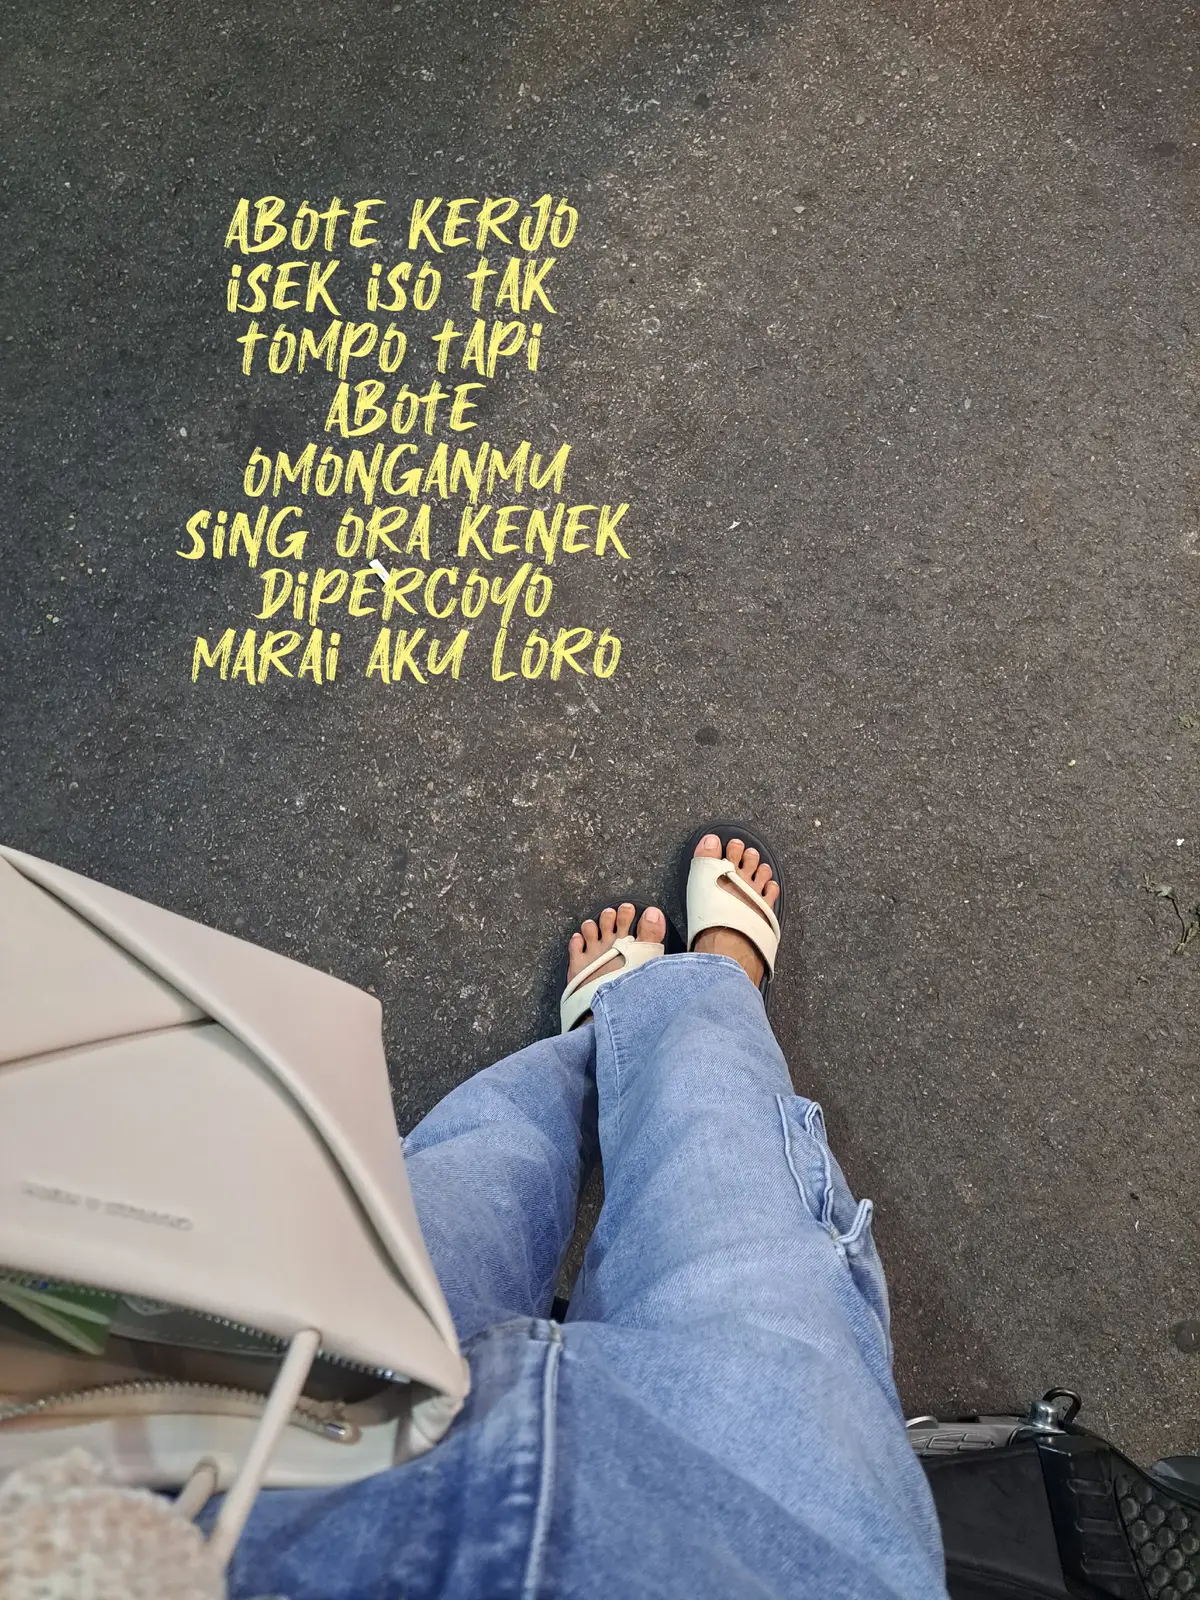 ABOTE KERJO
ISEK ISO TAK
TOMPO TAPI
ABOTE
OMONGANMU
SING ORA KENEK
DIPERCOYO
MARAI AKU LORO